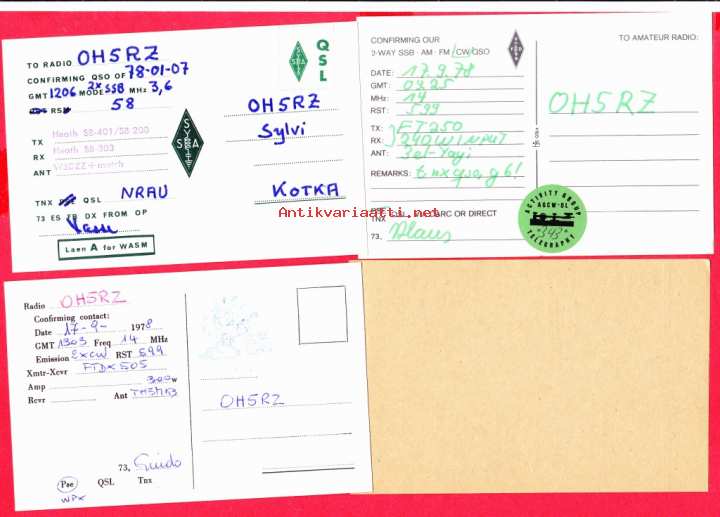 TO RADIO OH5RZ
CONFIRMING QSO OF 78-01-07
GMT 1206 MODE 2xSSB MHz 3,6
RSM 58
TX Heath SB-401/SB 200
RX Heath SB-303
ANT W3DZZ + match
TNX QSL NRAU
73 ES TB DX FROM OP
Vasse
Laen A for WASM
QSL
SSA
OH5RZ
Sylvi
KOTKA
CONFIRMING OUR
2-WAY SSB · AM · FM CW QSO
DATE: 17.9.78
GMT: 0925
MHz: 14
RST: 599
TX: FT250
RX: 240W INPUT
ANT: 3el-Yagi
REMARKS: tnx qso, gb!
TNX
73, Klaus
TO AMATEUR RADIO:
OH5RZ
ACTIVITY GROUP
AGCW-DL
TELEGRAPHY
Antikvariaatti.net
Radio OH5RZ
Confirming contact:
Date 17-9- 1978
GMT 1303 Freq 14 MHz
Emission EXCW RST 599
Xmtr-Xcvr FTDX505
Amp 300 w
Rcvr Ant TH3MK3
73, Guido
Pse QSL Tnx
WPX
OH5RZ